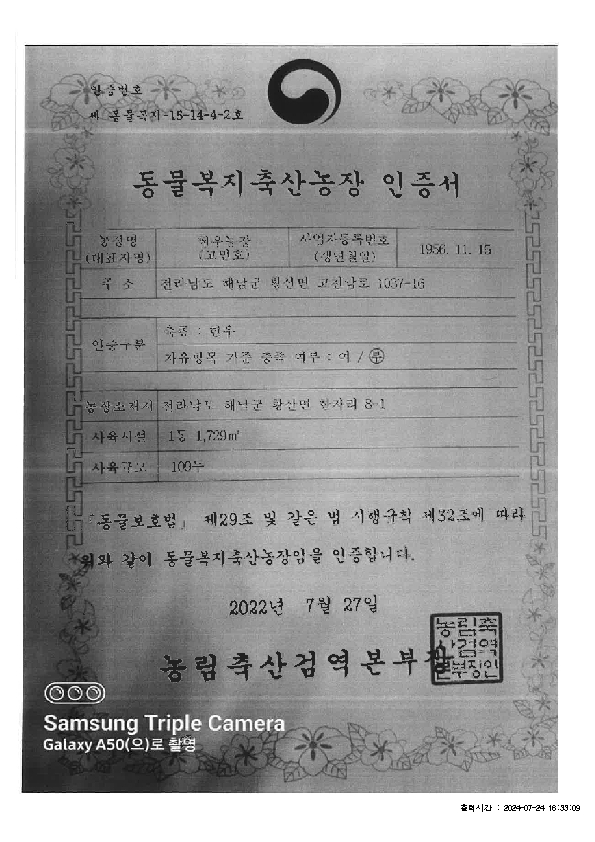 인증번호
제 동물복지-15-14-4-2호
동물복지축산농장 인증서
농장명
(대표자명)
현우농장
(고번호)
사업자등록번호
(생년월일)
1956. 11. 15
주 소
전라남도 해남군 황산면 고천남로 1037-16
인증구분
축종 : 한우
자유방목 기준 충족 여부 : 여 / 부
농장소재지
전라남도 해남군 황산면 한자리 8-1
사육시설
1동 1,729㎡
사육규모
100두
「동물보호법」 제29조 및 같은 법 시행규칙 제32조에 따라
위와 같이 동물복지축산농장임을 인증합니다.
2022년 7월 27일
농림축산검역본부장
농림축
산검역
본부장인
Samsung Triple Camera
Galaxy A50(으)로 촬영
출력시간 : 2024-07-24 16:33:09